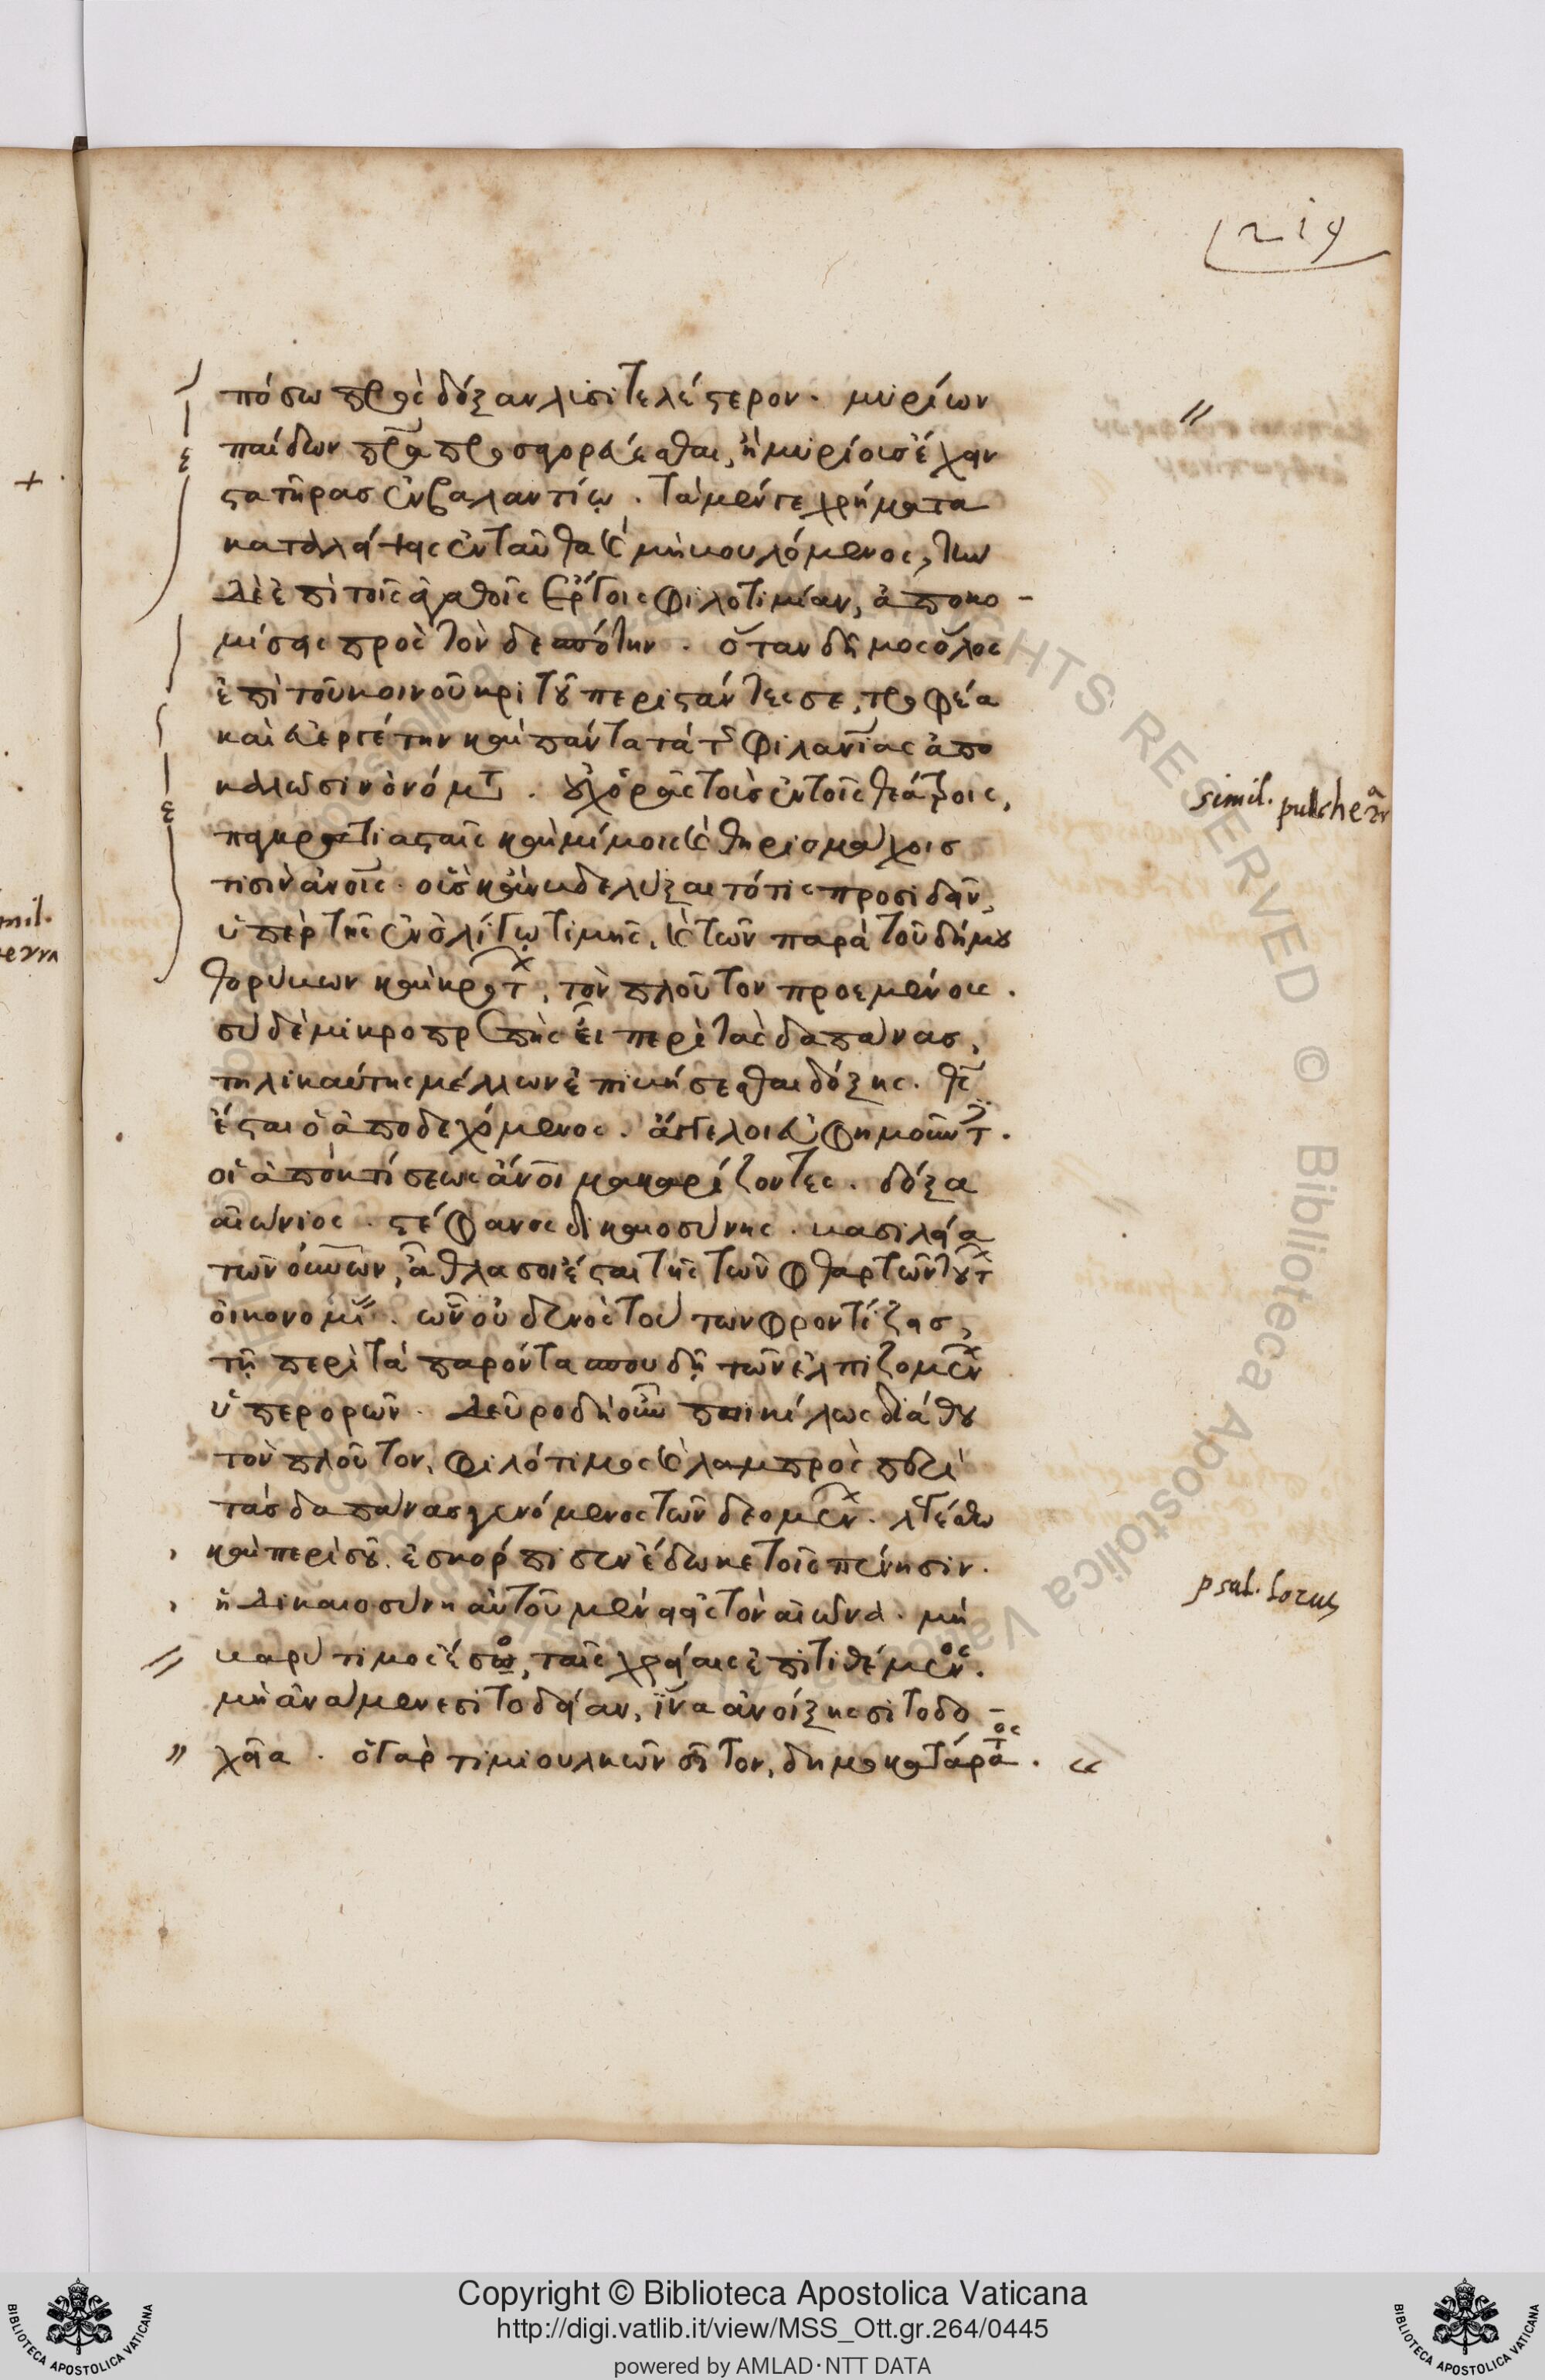 219
πόσω πρὸς δόξαν λυσιτελέστερον. μυρίων
παίδων πρα προσαγορεύεσθαι, ἢ μυρίους ἔχειν
στατῆρας ἐν βαλαντίω. τὰ μέν γε χρήματα
καταλείψεις ἐνταῦθα καὶ μὴ βουλόμενος, τὴν
δὲ ἐπὶ τοῖς ἀγαθοῖς ἔργοις φιλοτιμίαν, ἀποκο-
μίσεις πρὸς τὸν δεσπότην. ὅταν δῆμος ὅλος
ἐπὶ τοῦ κοινοῦ κριτοῦ περιστάντες σε, τροφέα
καὶ εὐεργέτην καὶ πάντα τὰ τῆς φιλανίας ἀπο
καλῶσιν ὀνόμτ. οὐχ ὁρᾶς τοὺς ἐν τοῖς θεάτροις,
παγκρατιασταῖς καὶ μίμοις καὶ θηριομάχοις
τισὶν ἀνοις. οὓς κἂν βδελύξαιτό τις προσιδεῖν,
ὑπὲρ τῆς ἐν ὀλίγω τιμῆς, καὶ τῶν παρὰ τοῦ δήμου
θορύβων καὶ κροτ, τὸν πλοῦτον προεμένους.
σὺ δὲ μικροπρεπὴς εἶ περὶ τὰς δαπάνας,
τηλικαύτης μέλλων ἐπιβήσεσθαι δόξης. θς
ἔσται ὁ ἀποδεχόμενος. ἄγγελοι εὐφημοῦντ.
οἱ ἀπὸ κτίσεως ἄνοι μακαρίζοντες. δόξα
αἰώνιος. στέφανος δικαιοσύνης. βασιλεία
τῶν οὐνῶν, ἆθλά σοι ἔσται τῆς τῶν φθαρτῶν τούτ
οἰκονομί. ὧν οὐδενὸς τούτων φροντίζεις,
τῇ περὶ τὰ παρόντα σπουδῇ τῶν ἐλπιζομέν
ὑπερορῶν. δεῦρο δὴ οὖν ποικίλως διάθου
τὸν πλοῦτον, φιλότιμος καὶ λαμπρὸς περὶ
τὰς δαπάνας γενόμενος τῶν δεομέν. λεγέσθω
καὶ περὶ σοῦ. ἐσκόρπισεν ἔδωκε τοῖς πένησιν.
ἡ δικαιοσύνη αὐτοῦ μένει εἰς τὸν αἰῶνα. μὴ
βαρύτιμος ἔσο, ταῖς χρείαις ἐπιτιθέμενος.
μὴ ἀνάμενε σιτοδείαν, ἵνα ἀνοίξῃς σιτοδο-
χεῖα. ὁ γὰρ τιμιουλκῶν σῖτον, δημοκατάρατος.
simil. pulcherr
psal. locus
Copyright © Biblioteca Apostolica Vaticana
http://digi.vatlib.it/view/MSS_Ott.gr.264/0445
powered by AMLAD·NTT DATA